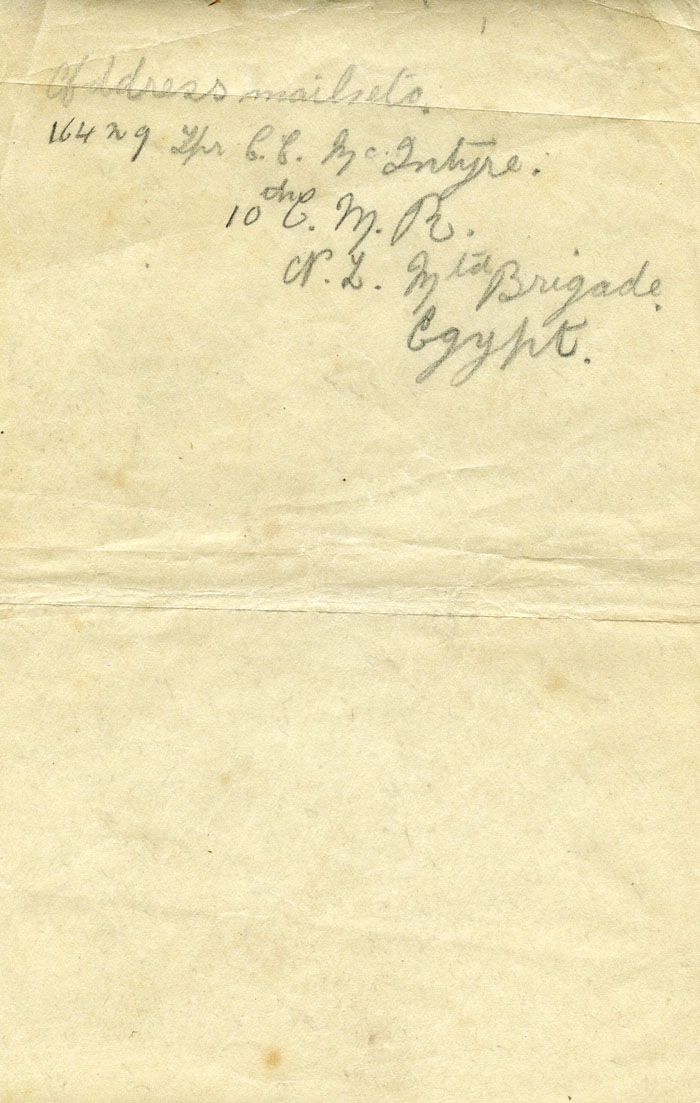 Address mails etc.
16429 Tpr C. C. McIntyre.
10th C. M. R.
N. Z. Mtd Brigade.
Egypt.